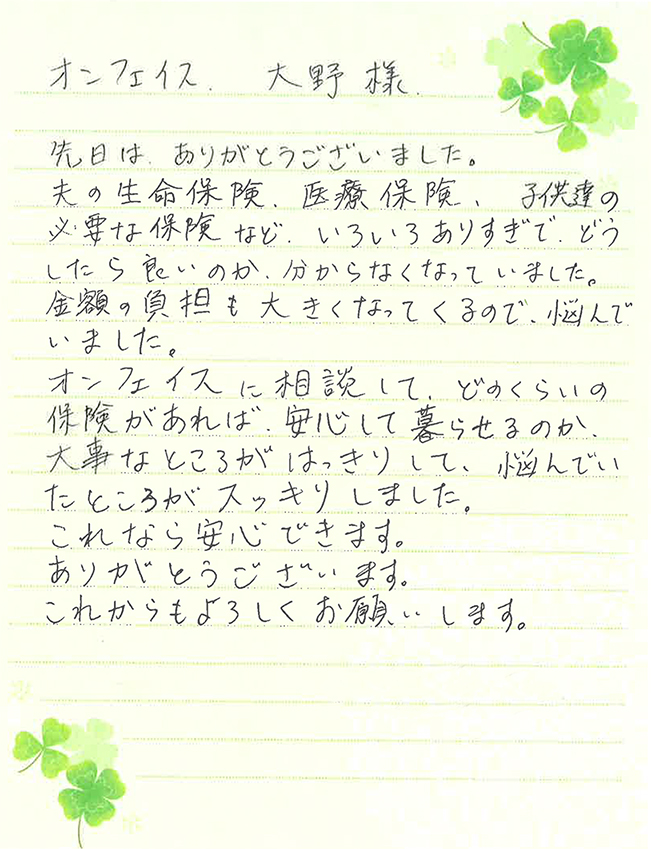 オンフェイス. 大野様.
先日は、ありがとうございました。
夫の生命保険、医療保険、子供達の
必要な保険など、いろいろありすぎで、どう
したら良いのか、分からなくなっていました。
金額の負担も大きくなってくるので、悩んで
いました。
オンフェイスに相談して、どのくらいの
保険があれば、安心して暮らせるのか、
大事なところがはっきりして、悩んでい
たところがスッキリしました。
これなら安心できます。
ありがとうございます。
これからもよろしくお願いします。